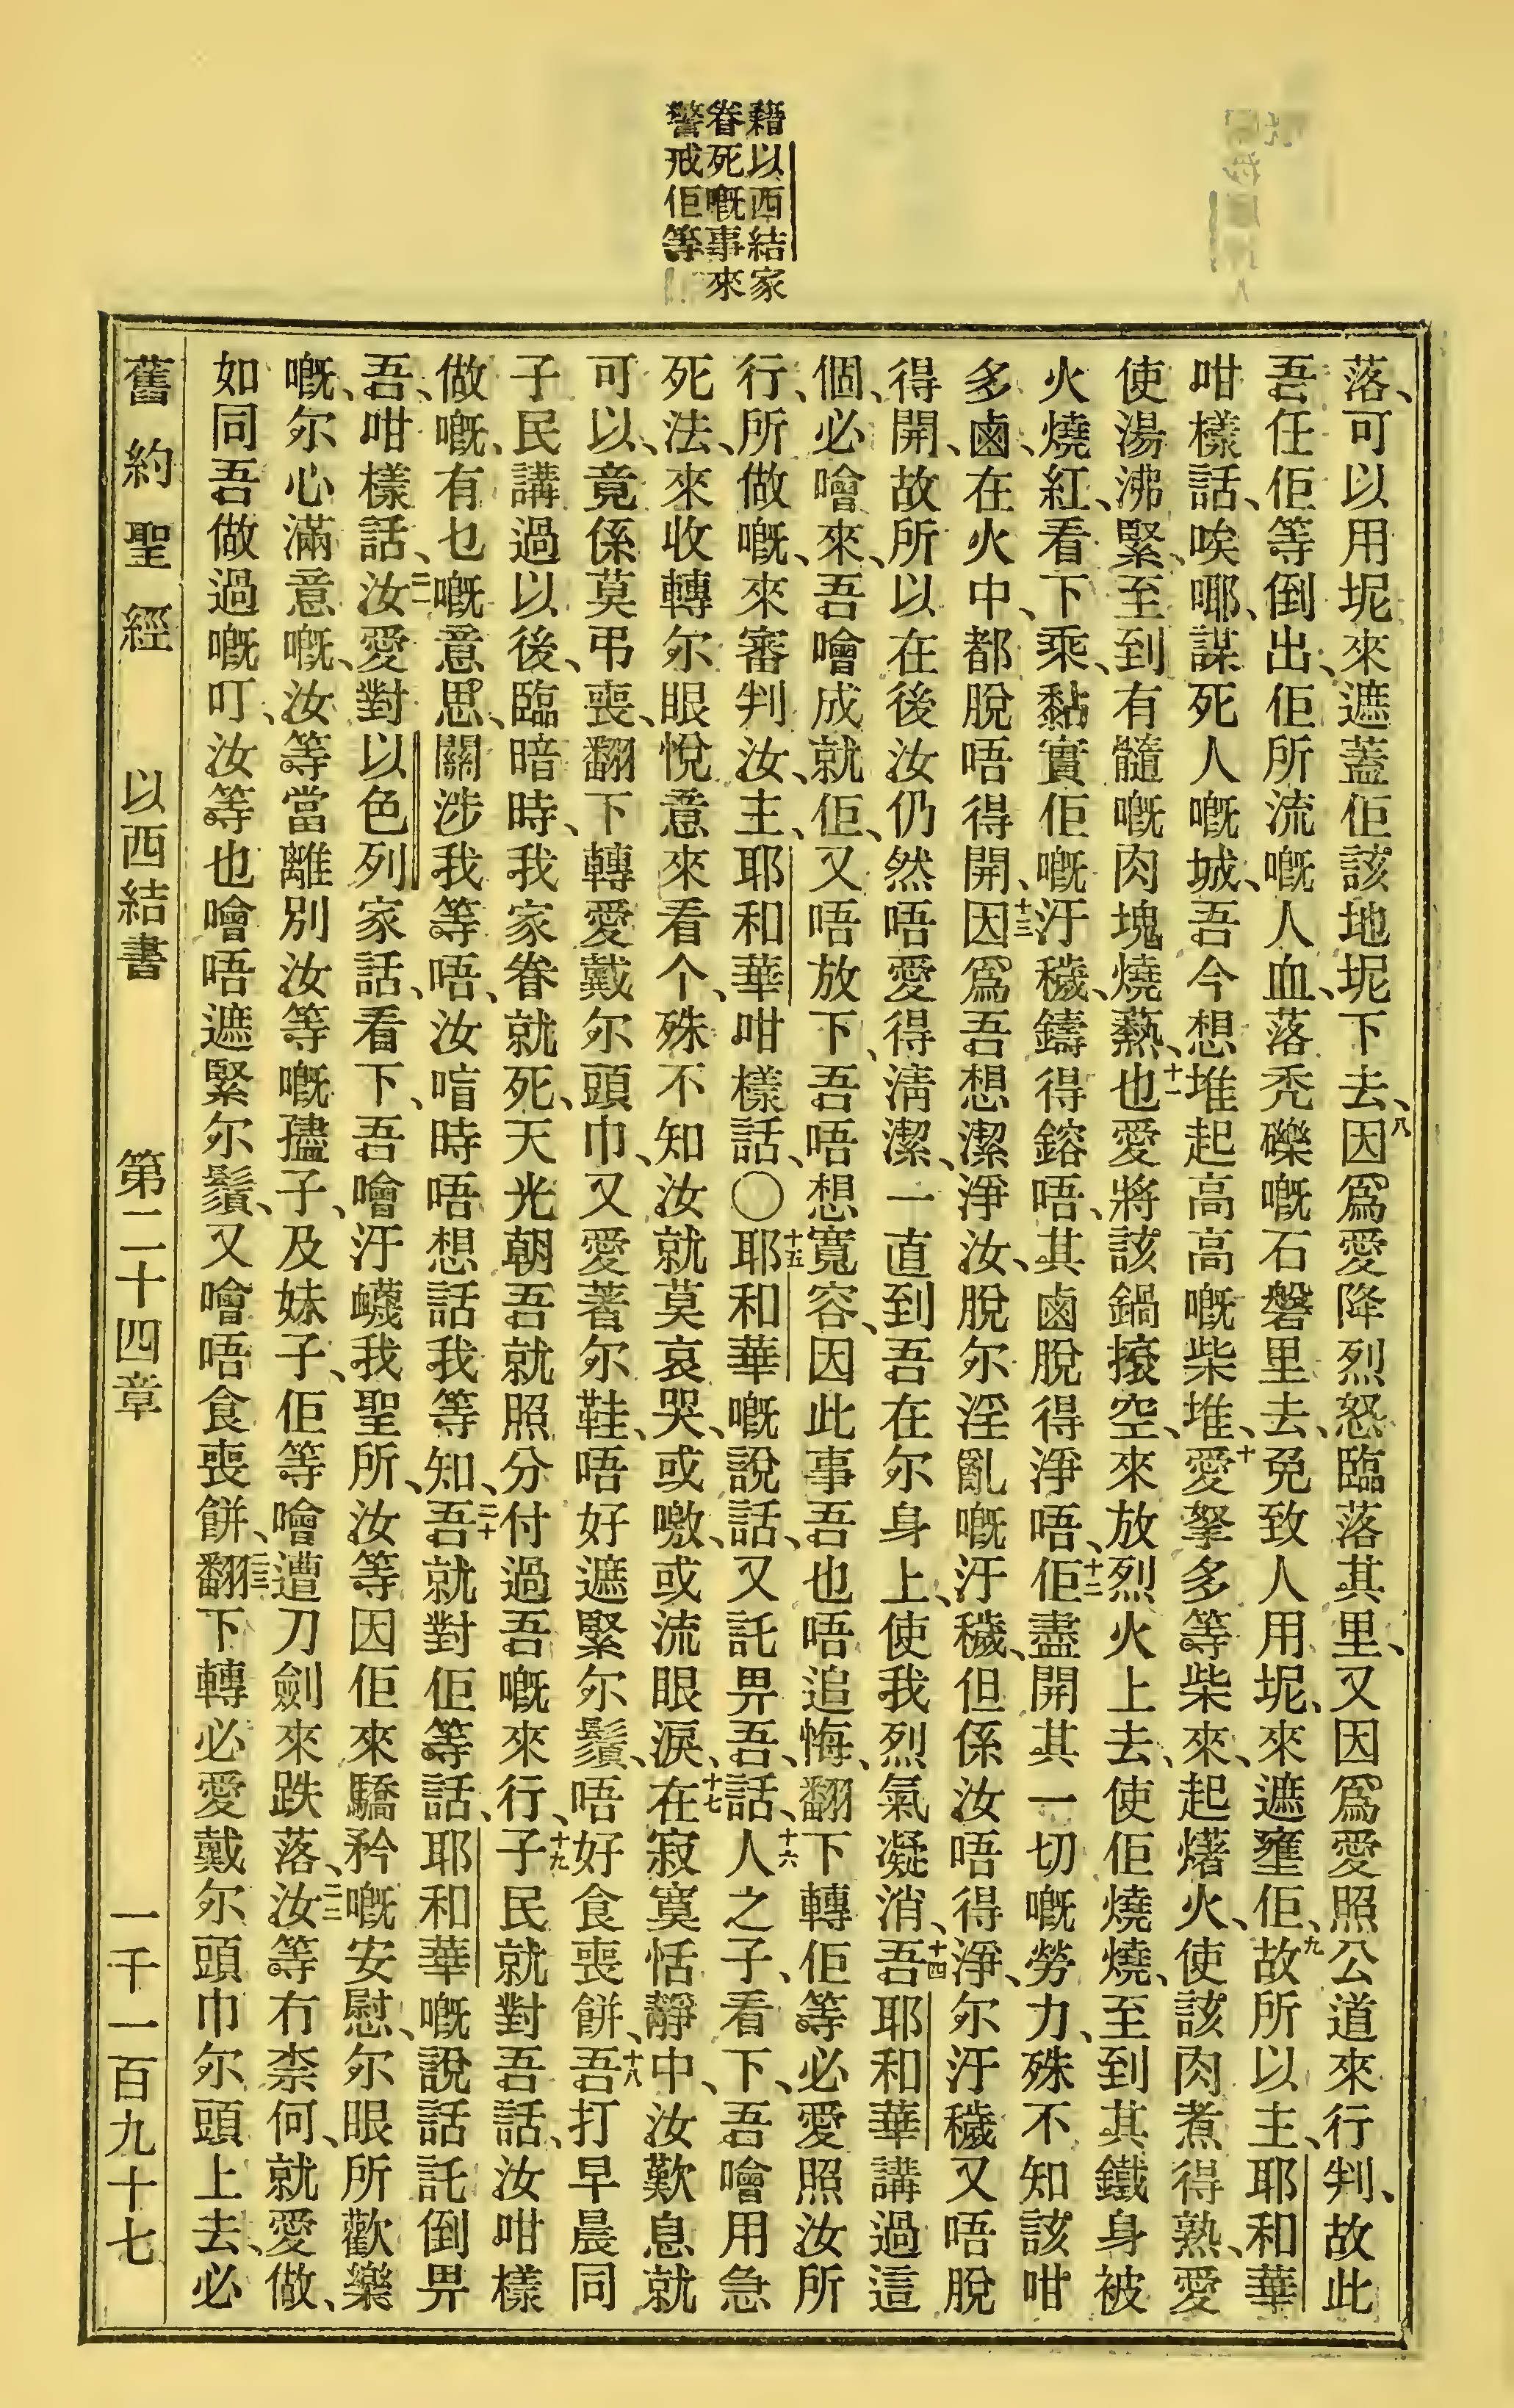 藉以西結家
眷死嘅事來
警戒佢等
落、可以用坭來遮蓋佢該地坭下去、八因爲愛降烈怒臨落其里、又因爲愛照公道來行判、故此
吾任佢等倒出、佢所流嘅人血、落禿礫嘅石磐里去、免致人用坭、來遮壅佢、九故所以主、耶和華
咁樣話、唉哪、謀死人嘅城、吾今想堆起高高嘅柴堆、十愛拏多等柴來、起火、使該肉煮得熟、愛
使湯沸緊、至到有髓嘅肉塊燒爇、十一也愛將該鍋空、來放烈火上去、使佢燒燒、至到其鐵身被
火燒紅、看下乘、黏實佢嘅汙穢、鑄得鎔唔、其鹵脫得淨唔、十二佢盡開其一切嘅勞力、殊不知該咁
多鹵、在火中、都脫唔得開、十三因爲吾想潔淨汝、脫尔淫亂嘅汙穢、但係汝唔得淨、尔汙穢又唔脫
得開、故所以在後汝仍然唔愛得淸潔、一直到吾在尔身上、使我烈氣凝消、十四吾耶和華講過這
個、必噲來、吾噲成就佢、又唔放下、吾唔想寬容、因此事吾也唔追悔、翻下轉佢等必愛照汝所
行、所做嘅、來審判汝、主、耶和華咁樣話、〇十五耶和華嘅說話、又託畀吾、話、十六人之子、看下、吾噲用急
死法、來收轉尔眼悅意來看个、殊不知汝就莫哀哭、或噭、或流眼淚、十七在寂寞恬靜中、汝歎息就
可以、竟係莫弔喪、翻下轉愛戴尔頭巾、又愛著尔鞋、唔好遮緊尔鬚、唔好食喪餅、十八吾打早晨同
子民講過以後、臨暗時、我家眷就死、天光朝吾就照分付過吾嘅來行、十九子民就對吾話、汝咁樣
做嘅、有乜嘅意思、關涉我等唔、汝唁時唔想話我等知、二十吾就對佢等話、耶和華嘅說話託倒畀
吾、咁樣話、二一汝愛對以色列家話、看下、吾噲汙衊我聖所、汝等因佢來驕矜嘅安慰、尔眼所歡樂
嘅、尔心滿意嘅、汝等當離別汝等嘅孻子、及妹子、佢等噲遭刀劍來跌落、二二汝等冇柰何、就愛做、
如同吾做過嘅叮、汝等也噲唔遮緊尔鬚、又噲唔食喪餅、二三翻下轉必愛戴尔頭巾尔頭上去、必
舊約聖經 以西結書 第二十四章 一千一百九十七